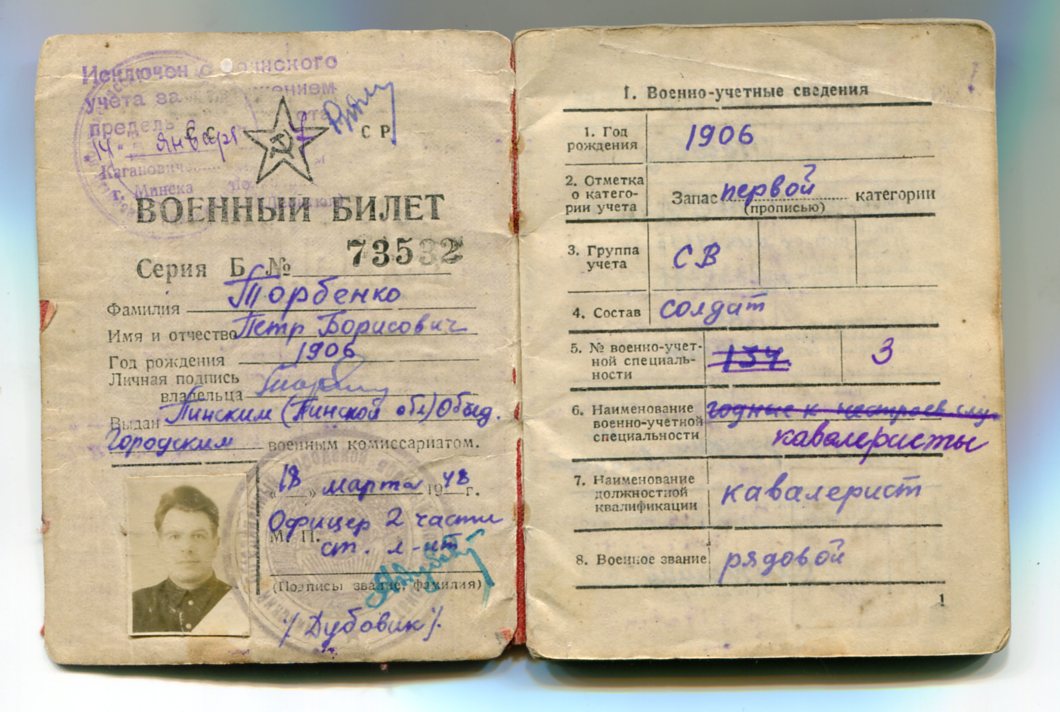 Исключен с воинского
учета за
предель
14 январ
СССР
Каганович
Минска
ВОЕННЫЙ БИЛЕТ
Серия Б № 73532
Фамилия Торбенко
Имя и отчество Петр Борисович
Год рождения 1906
Личная подпись
владельца
Выдан Пинским (Пинской обл) Объед.
Городским военным комиссариатом.
„18“ марта 1948 г.
Офицер 2 части
М. П. ст. л-нт
(Подписы звание, фамилия)
/Дубовик/.
I. Военно-учетные сведения
1. Год
рождения 1906
2. Отметка
о катего-
рии учета Запас первой категории
(прописью)
3. Группа
учета СВ
4. Состав солдат
5. № военно-учет-
ной специаль-
ности 134 3
6. Наименование
военно-учетной
специальности годные к нестроев слу.
кавалеристы
7. Наименование
должностной
квалификации кавалерист
8. Военное звание рядовой
1